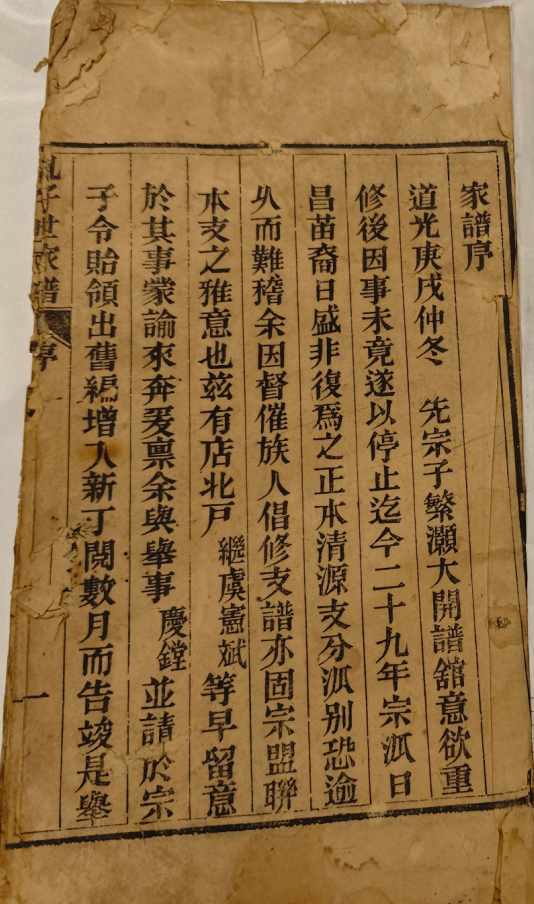 家譜序
道光庚戌仲冬　先宗子繁灝大開譜舘意欲重
修後因事未竟遂以停止迄今二十九年宗泒日
昌苗裔日盛非復爲之正本清源支分泒別恐逾
乆而難稽余因督催族人倡修支譜亦固宗盟聨
本支之雅意也兹有店北戸　繼虞憲斌　等早留意
於其事蒙諭來奔爰禀余與舉事　慶鏜　並請於宗
子令貽領出舊編增入新丁閱數月而告竣是舉
子世家譜
序
一